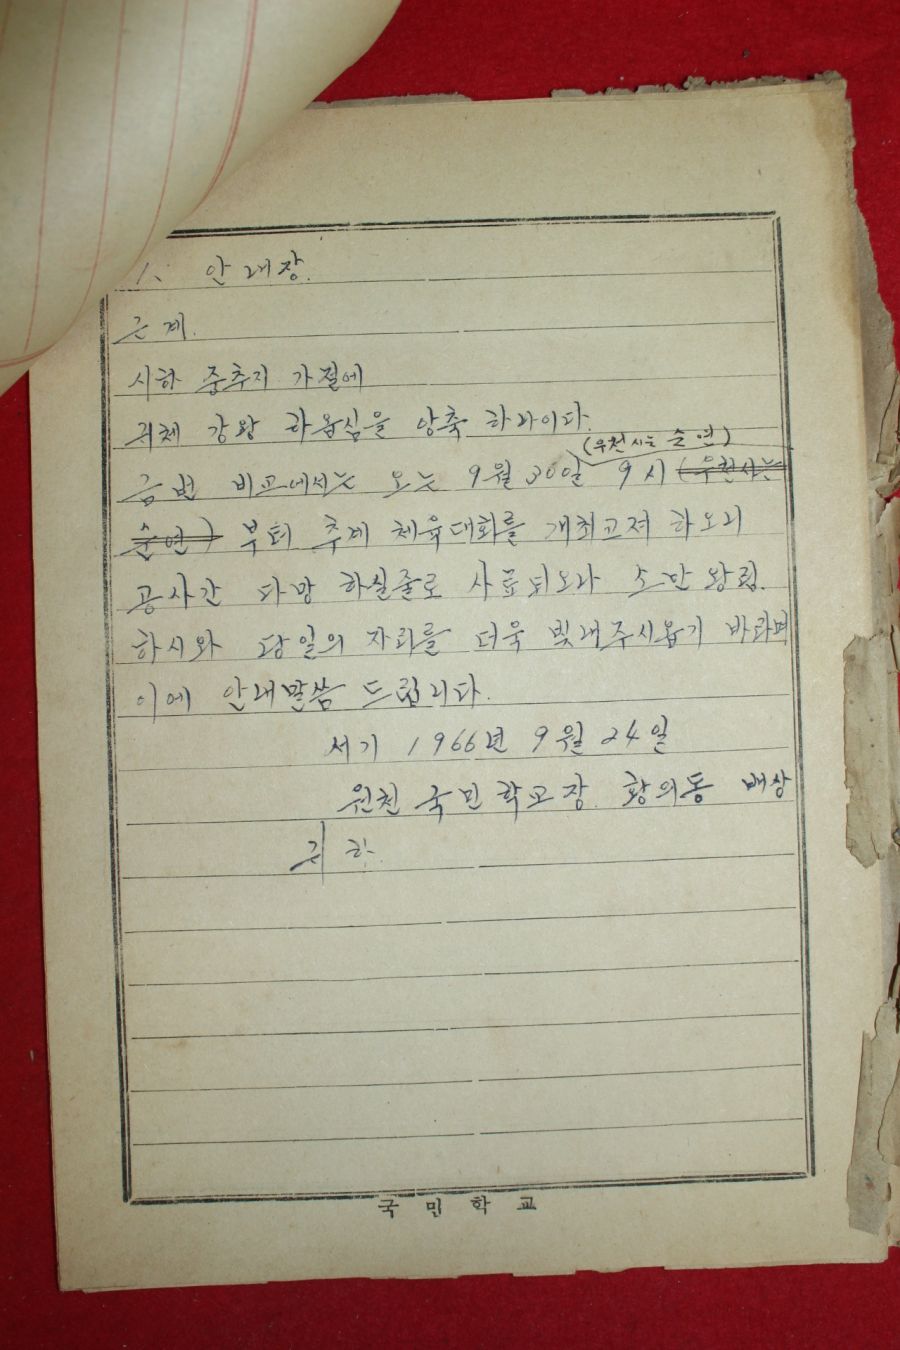 1、 안내장.
근계.
시하 중추지 가절에
귀체 강왕 하옵심을 앙축 하나이다.
(우천시는 순연)
금번 비교에서는 오는 9월 30일 9시 (우천시는
순연) 부터 추계 체육대회를 개최고저 하오니
공사간 다망 하실줄로 사료되오나 소만 왕림.
하시와 당일의 자리를 더욱 빛내주시옵기 바라며
이에 안내말씀 드립니다.
서기 1966년 9월 24일
원천 국민학교장. 황의동 배상
귀하.
국민학교